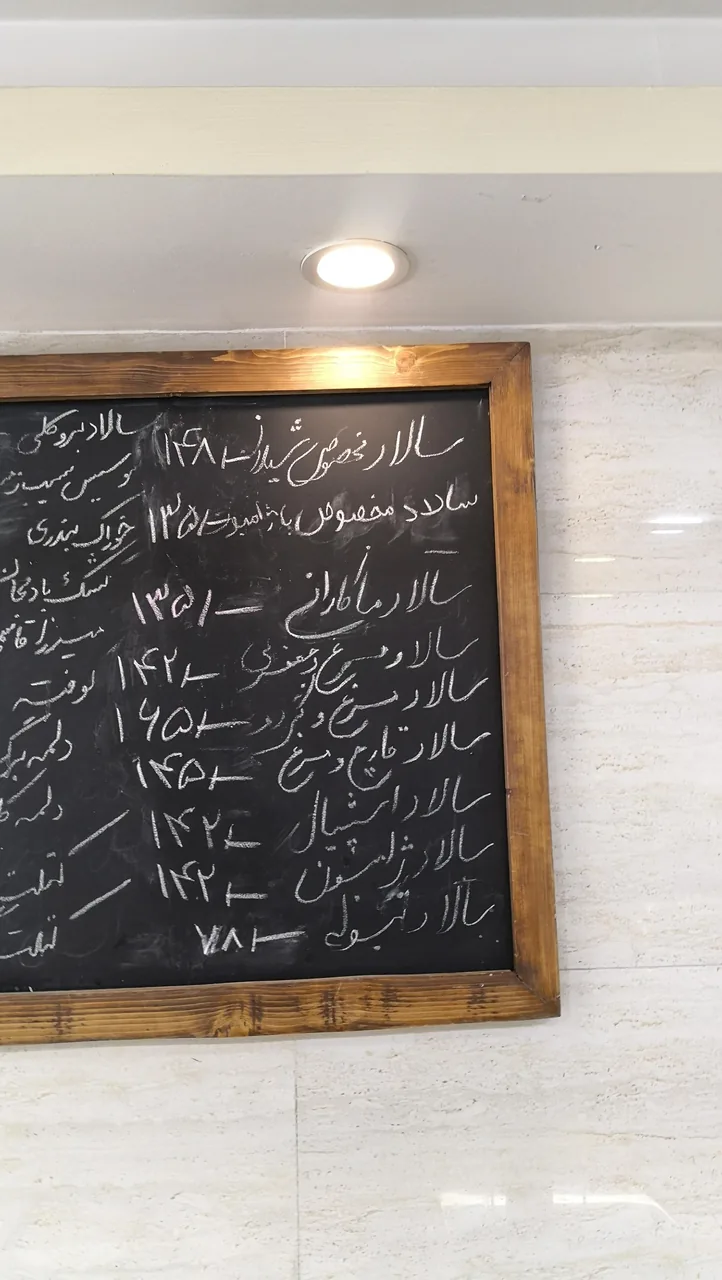 سالاد مخصوص شیراز ۱۴۸/-
سالاد مخصوص با ژامبون ۱۳۵/-
سالاد ماکارانی ۱۳۵/-
سالاد مرغ و جعفری ۱۴۲/-
سالاد مرغ و گردو ۱۶۵/-
سالاد قارچ و مرغ ۱۴۵/-
سالاد اسشیال ۱۴۲/-
سالاد ژامبون ۱۴۲/-
سالاد تبوله ۷۸/-
سالاد بروکلی
سوسیس سیب
خوراک بندری
کشک بادمجان
میرزا قاسمی
کوفته
دلمه برگ
دلمه
کتلت
کتلت